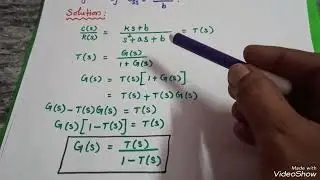 Solution:
C(s)/R(s) = Ks+b / s²+as+b = T(s)
T(s) = G(s) / 1+G(s)
G(s) = T(s)[1+G(s)]
= T(s)+T(s)G(s)
G(s)-T(s)G(s) = T(s)
G(s)[1-T(s)] = T(s)
G(s) = T(s) / 1-T(s)
Made with
VideoShow